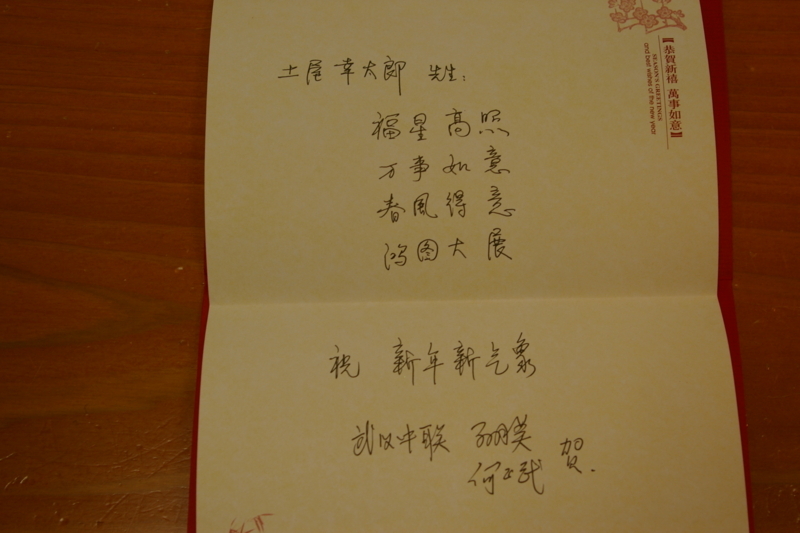 土屋 幸太郎 先生：
福星高照
万事如意
春風得意
鸿图大展
祝 新年新气象
武汉中联
何正武 贺.
恭賀新禧 萬事如意
SEASON'S GREETINGS
and best wishes of the new year